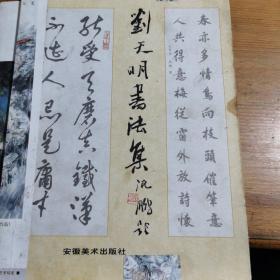 春亦多情鳥向枝頭催筆意
人共得意梅從窗外放詩懷
劉天明書法集
沈鵬題
能受天磨真鐵漢
不遭人忌是庸才
安徽美术出版社